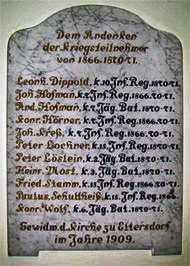 Dem Andenken
der Kriegsteilnehmer
von 1866.1870-71.
Leonh. Dippold, k.10.Jnf.Reg.1866.70-71.
Joh. Hofman, k.7.Jnf.Reg.1866.70-71.
And. Hofman, k.7.Jäg.Bat.1870-71.
Konr. Hörner, k.5.Jnf.Reg.1866.70-71.
Joh. Kreß, k.7.Jnf.Reg.1866.70-71.
Peter Lochner, k.15.Jnf.Reg.1870-71.
Peter Löslein, k.2.Jäg.Bat.1870-71.
Heinr. Most, k.2.Jäg.Bat.1870-71.
Fried. Stamm, k.15.Jnf.Reg.1866.70-71.
Paulus Schultheiß, k.15.Jnf.Reg.1866.
Konr. Wolf, k.6.Jäg.Bat.1870-71.
Gewidm. d. Kirche zu Eltersdorf
im Jahre 1909.